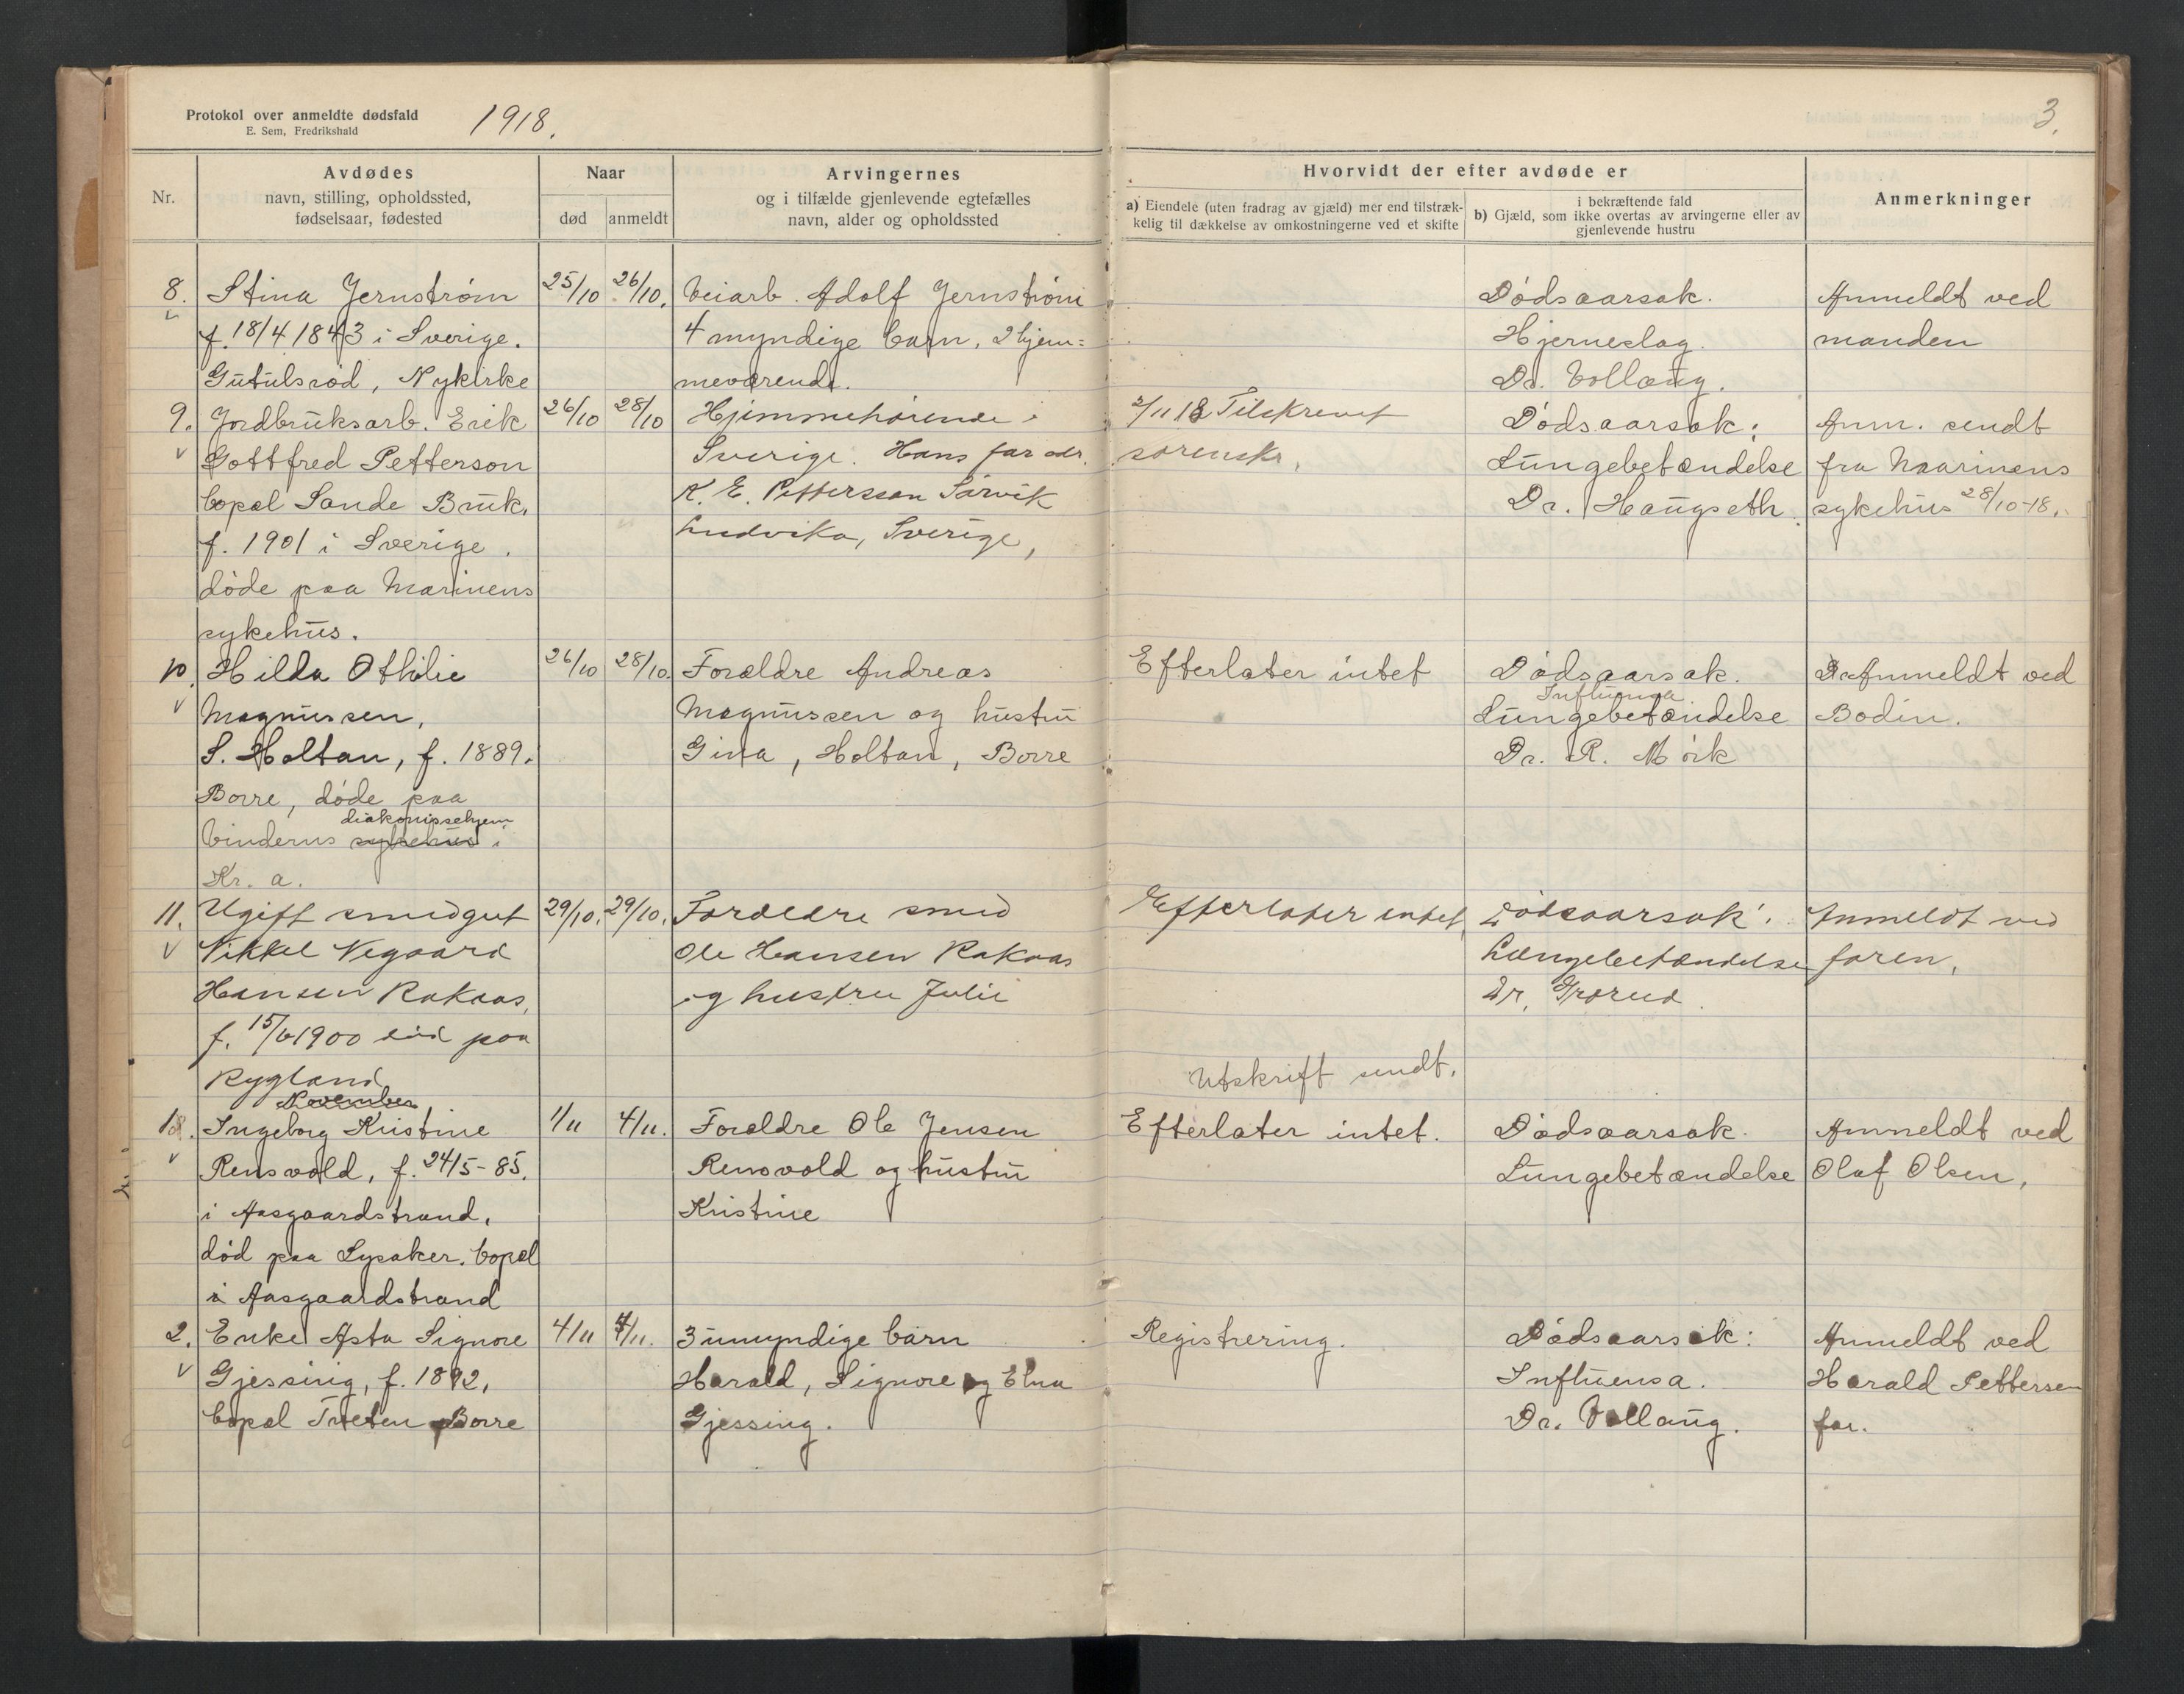 Protokol over anmeldte dødsfald
E. Sem, Fredrikshald
1918.
3.
Nr.
Avdødes
navn, stilling, opholdssted,
fødselsaar, fødested
Naar
død
anmeldt
Arvingernes
og i tilfælde gjenlevende egtefælles
navn, alder og opholdssted
Hvorvidt der efter avdøde er
a) Eiendele (uten fradrag av gjæld) mer end tilstræk-
kelig til dækkelse av omkostningerne ved et skifte
i bekræftende fald
b) Gjæld, som ikke overtas av arvingerne eller av
gjenlevende hustru
Anmerkninger
8. Stina Jernstrøm 25/10 26/10. Veiarb. Adolf Jernstrøm Dødsaarsak. Anmeldt ved
f. 18/4 1843 i Sverige. 4 myndige barn, 2 hjem= Hjerneslag. manden
Gutulsrød, Nykirke meværende. Dr. Vollaug.
9. Jordbruksarb. Erik 26/10 28/10 Hjemmehørende i 2/11 18 Tilskrevet Dødsaarsak: Anm. sendt
Gottfred Petterson Sverige. Hans far adr. sorenskr. Lungebetændelse fra Marinens
bopæl Sande Bruk. K. E. Pettersson Sörvik Dr. Haugseth. sykehus 28/10-18.
f. 1901 i Sverige. Ludvika, Sverige,
døde paa Marinens
sykehus.
10. Hilda Othilie 26/10 28/10. Forældre Andreas Efterlater intet Dødsaarsak. Anmeldt ved
Influensa
Magnussen, Magnussen og hustru Lungebetændelse Bodin.
S. Holtan, f. 1889. Gina, Holtan, Borre Dr. R. Mørk
Borre, døde paa
diakonissehjem
Vinderns sykehus i
Kr. a.
11. Ugift smedgut 29/10. 29/10. Forældre smed Efterlater intet Dødsaarsak: Anmeldt ved
Nikkel Vegaard Ole Hansen Rakaas Lungebetændelse faren.
Hansen Rakaas, og hustru Julie Dr. Grorud.
f. 15/6 1900 død paa
Rygland
Utskrift sendt.
November
Ingeborg Kristine 1/11 4/11. Forældre Ole Jensen Efterlater intet. Dødsaarsak. Anmeldt ved
Rensvold, f. 24/5-85. Rensvold og hustru Lungebetændelse Olaf Olsen,
i Aasgaardstrand. Kristine
død paa Lysaker. bopæl
i Aasgaardstrand
2. Enke Asta Signore 4/11 4/11. 3 umyndige barn Registrering. Dødsaarsak: Anmeldt ved
Gjessing, f. 1892, Harald, Signore og Elna Influensa. Harald Pettersen
bopæl Tveten Borre Gjessing. Dr. Vollaug. far.